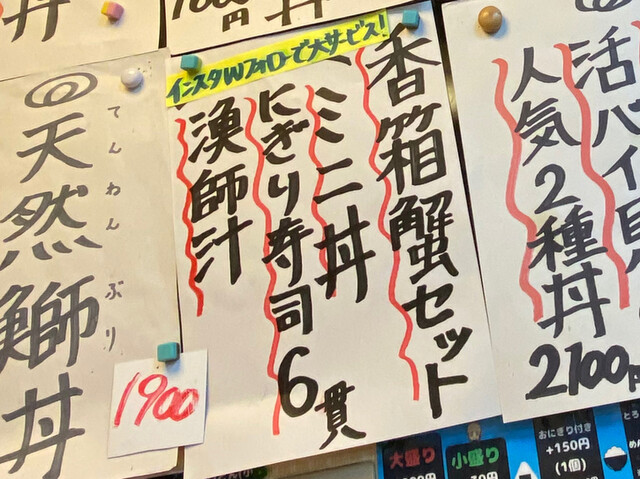 インスタWフォローで大サービス!
香箱蟹セット
ミニ丼
にぎり寿司6貫
漁師汁
天然漁師丼
てんねん ぶり
1900
人気2種丼
2100円
大盛り
小盛り
おにぎり付き
+150円
(1個)